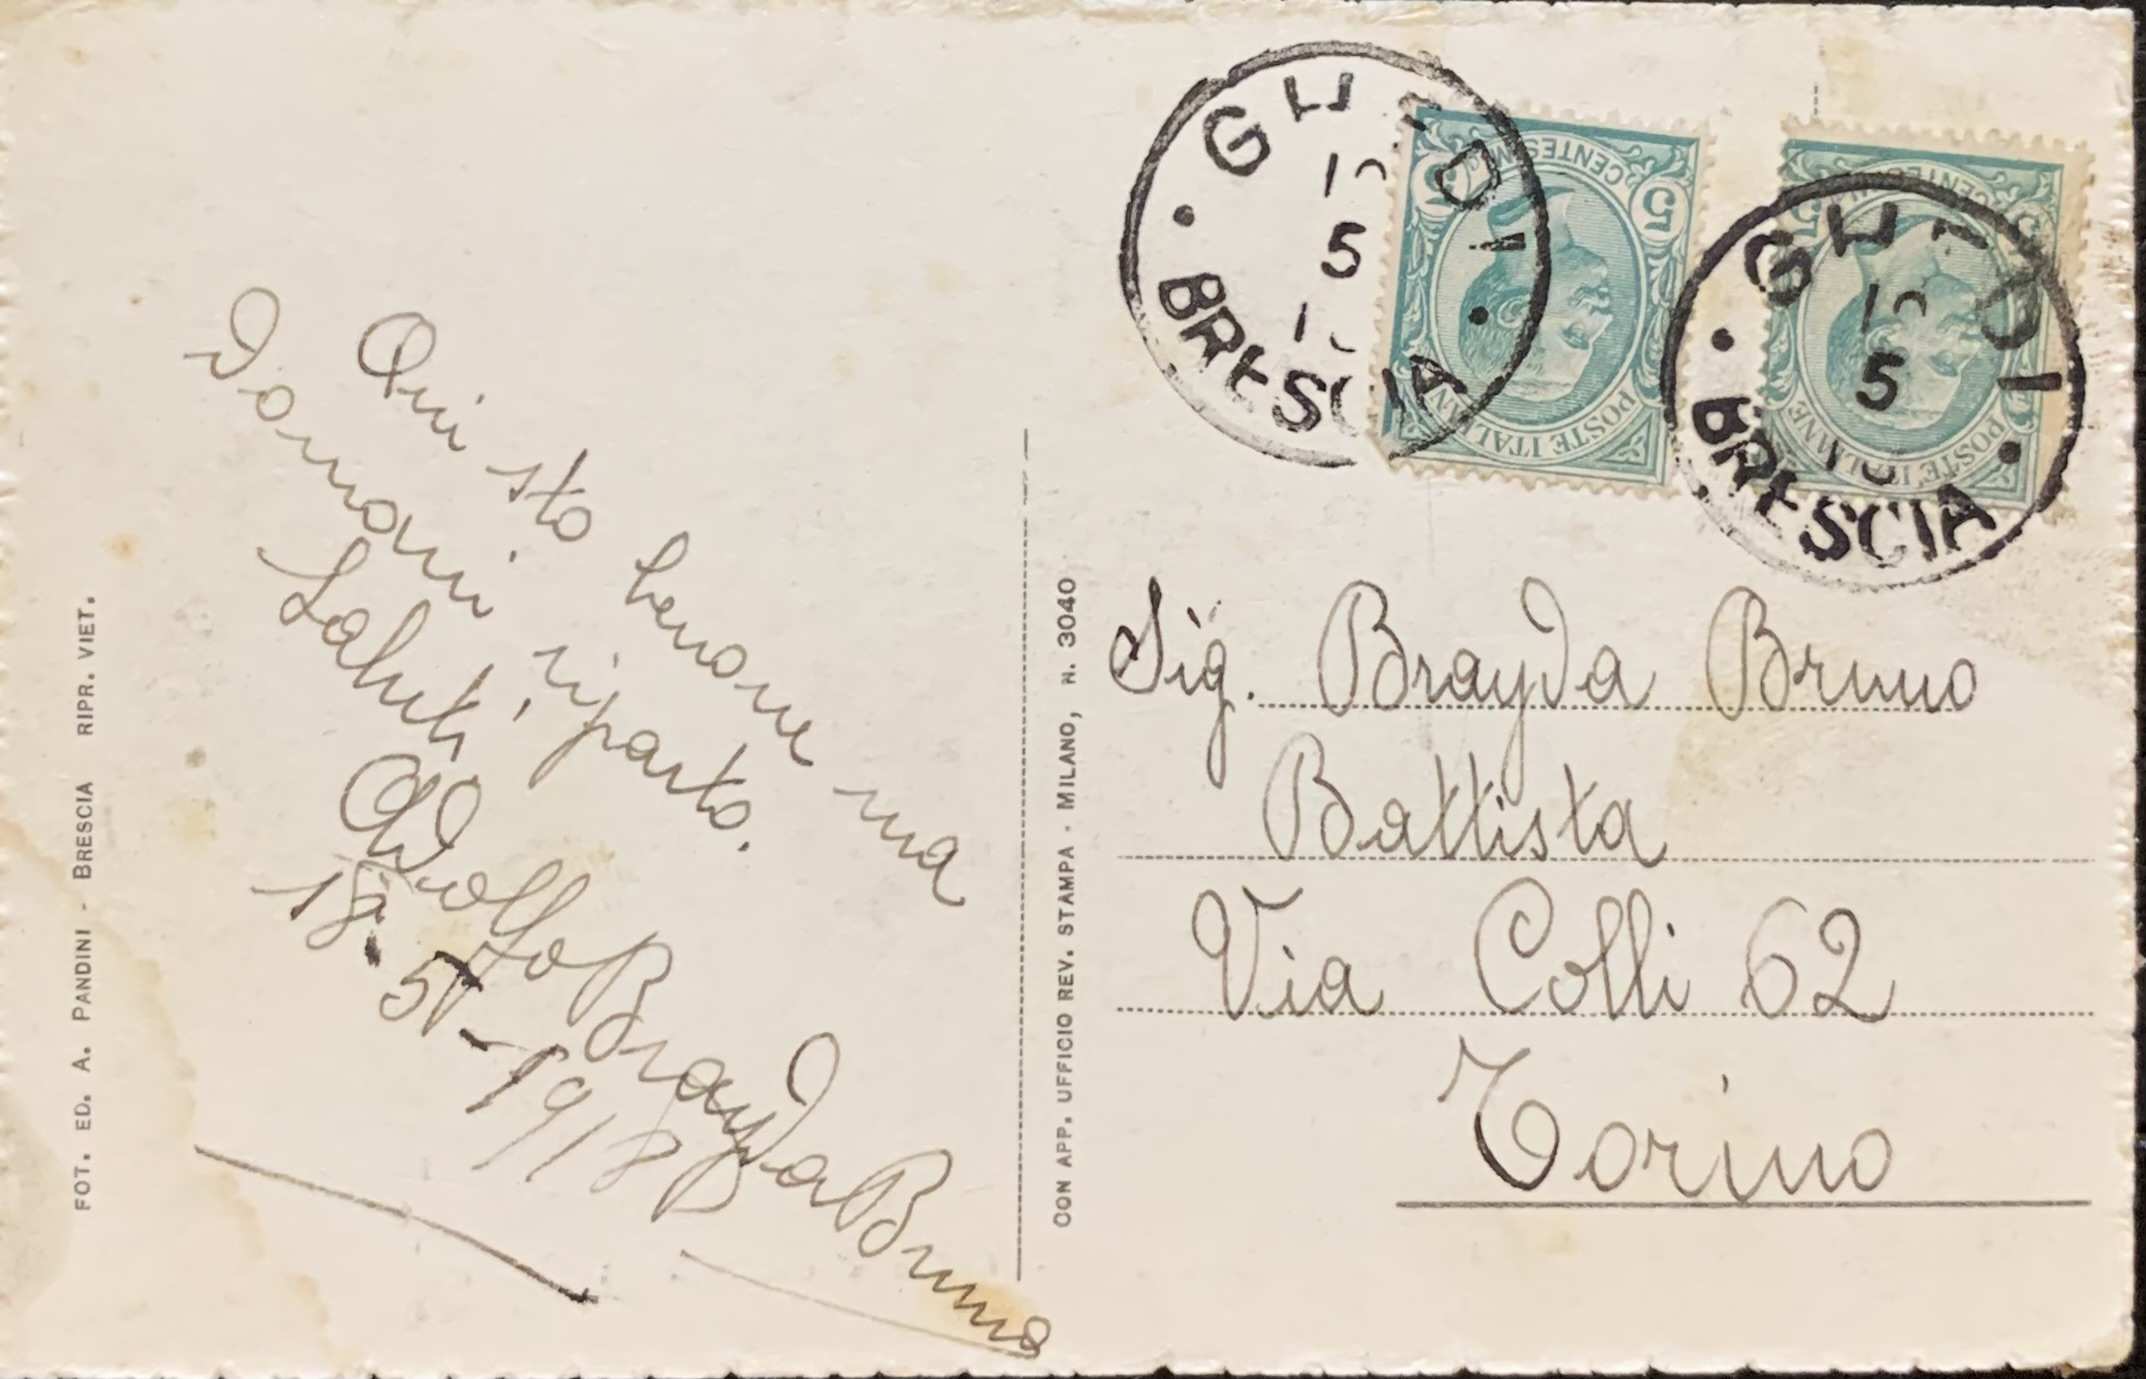 FOT. ED. A. PANDINI - BRESCIA RIPR. VIET.
Qui sto benone ma
Domani riparto.
Saluti
Adolfo Brayda Bruno
18-5-1918
CON APP. UFFICIO REV. STAMPA - MILANO, N. 3040
GHEDI
5
BRESCIA
5 CENTESIMI 5
POSTE ITALIANE
GHEDI
5
BRESCIA
5 CENTESIMI 5
POSTE ITALIANE
Sig. Brayda Bruno
Battista
Via Colli 62
Torino